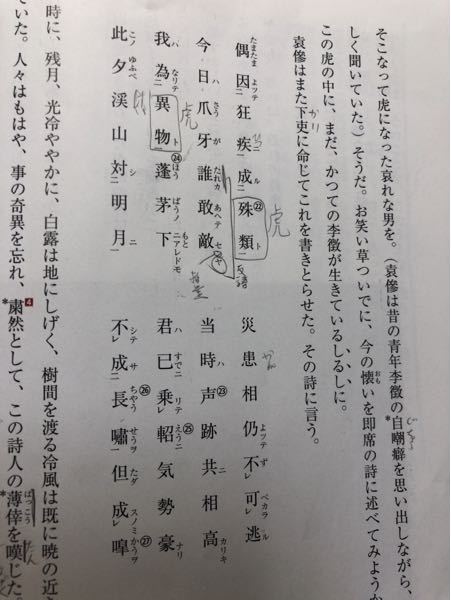 そこなって虎になった哀れな男を。(袁傪は昔の青年李徴の自嘲癖を思い出しながら、
しく聞いていた。)そうだ。お笑い草ついでに、今の懐いを即席の詩に述べてみようか
この虎の中に、まだ、かつての李徴が生きているしるしに。
袁傪はまた下吏に命じてこれを書きとらせた。その詩に言う。
偶因狂疾成殊類 災患相仍不可逃
今日爪牙誰敢敵 当時声跡共相高
我為異物蓬茅下 君已乗軺気勢豪
此夕渓山対明月 不成長嘯但成嘷
時に、残月、光冷ややかに、白露は地にしげく、樹間を渡る冷風は既に暁の近き
ていた。人々はもはや、事の奇異を忘れ、粛然として、この詩人の薄倖を嘆じた。
虎
虎